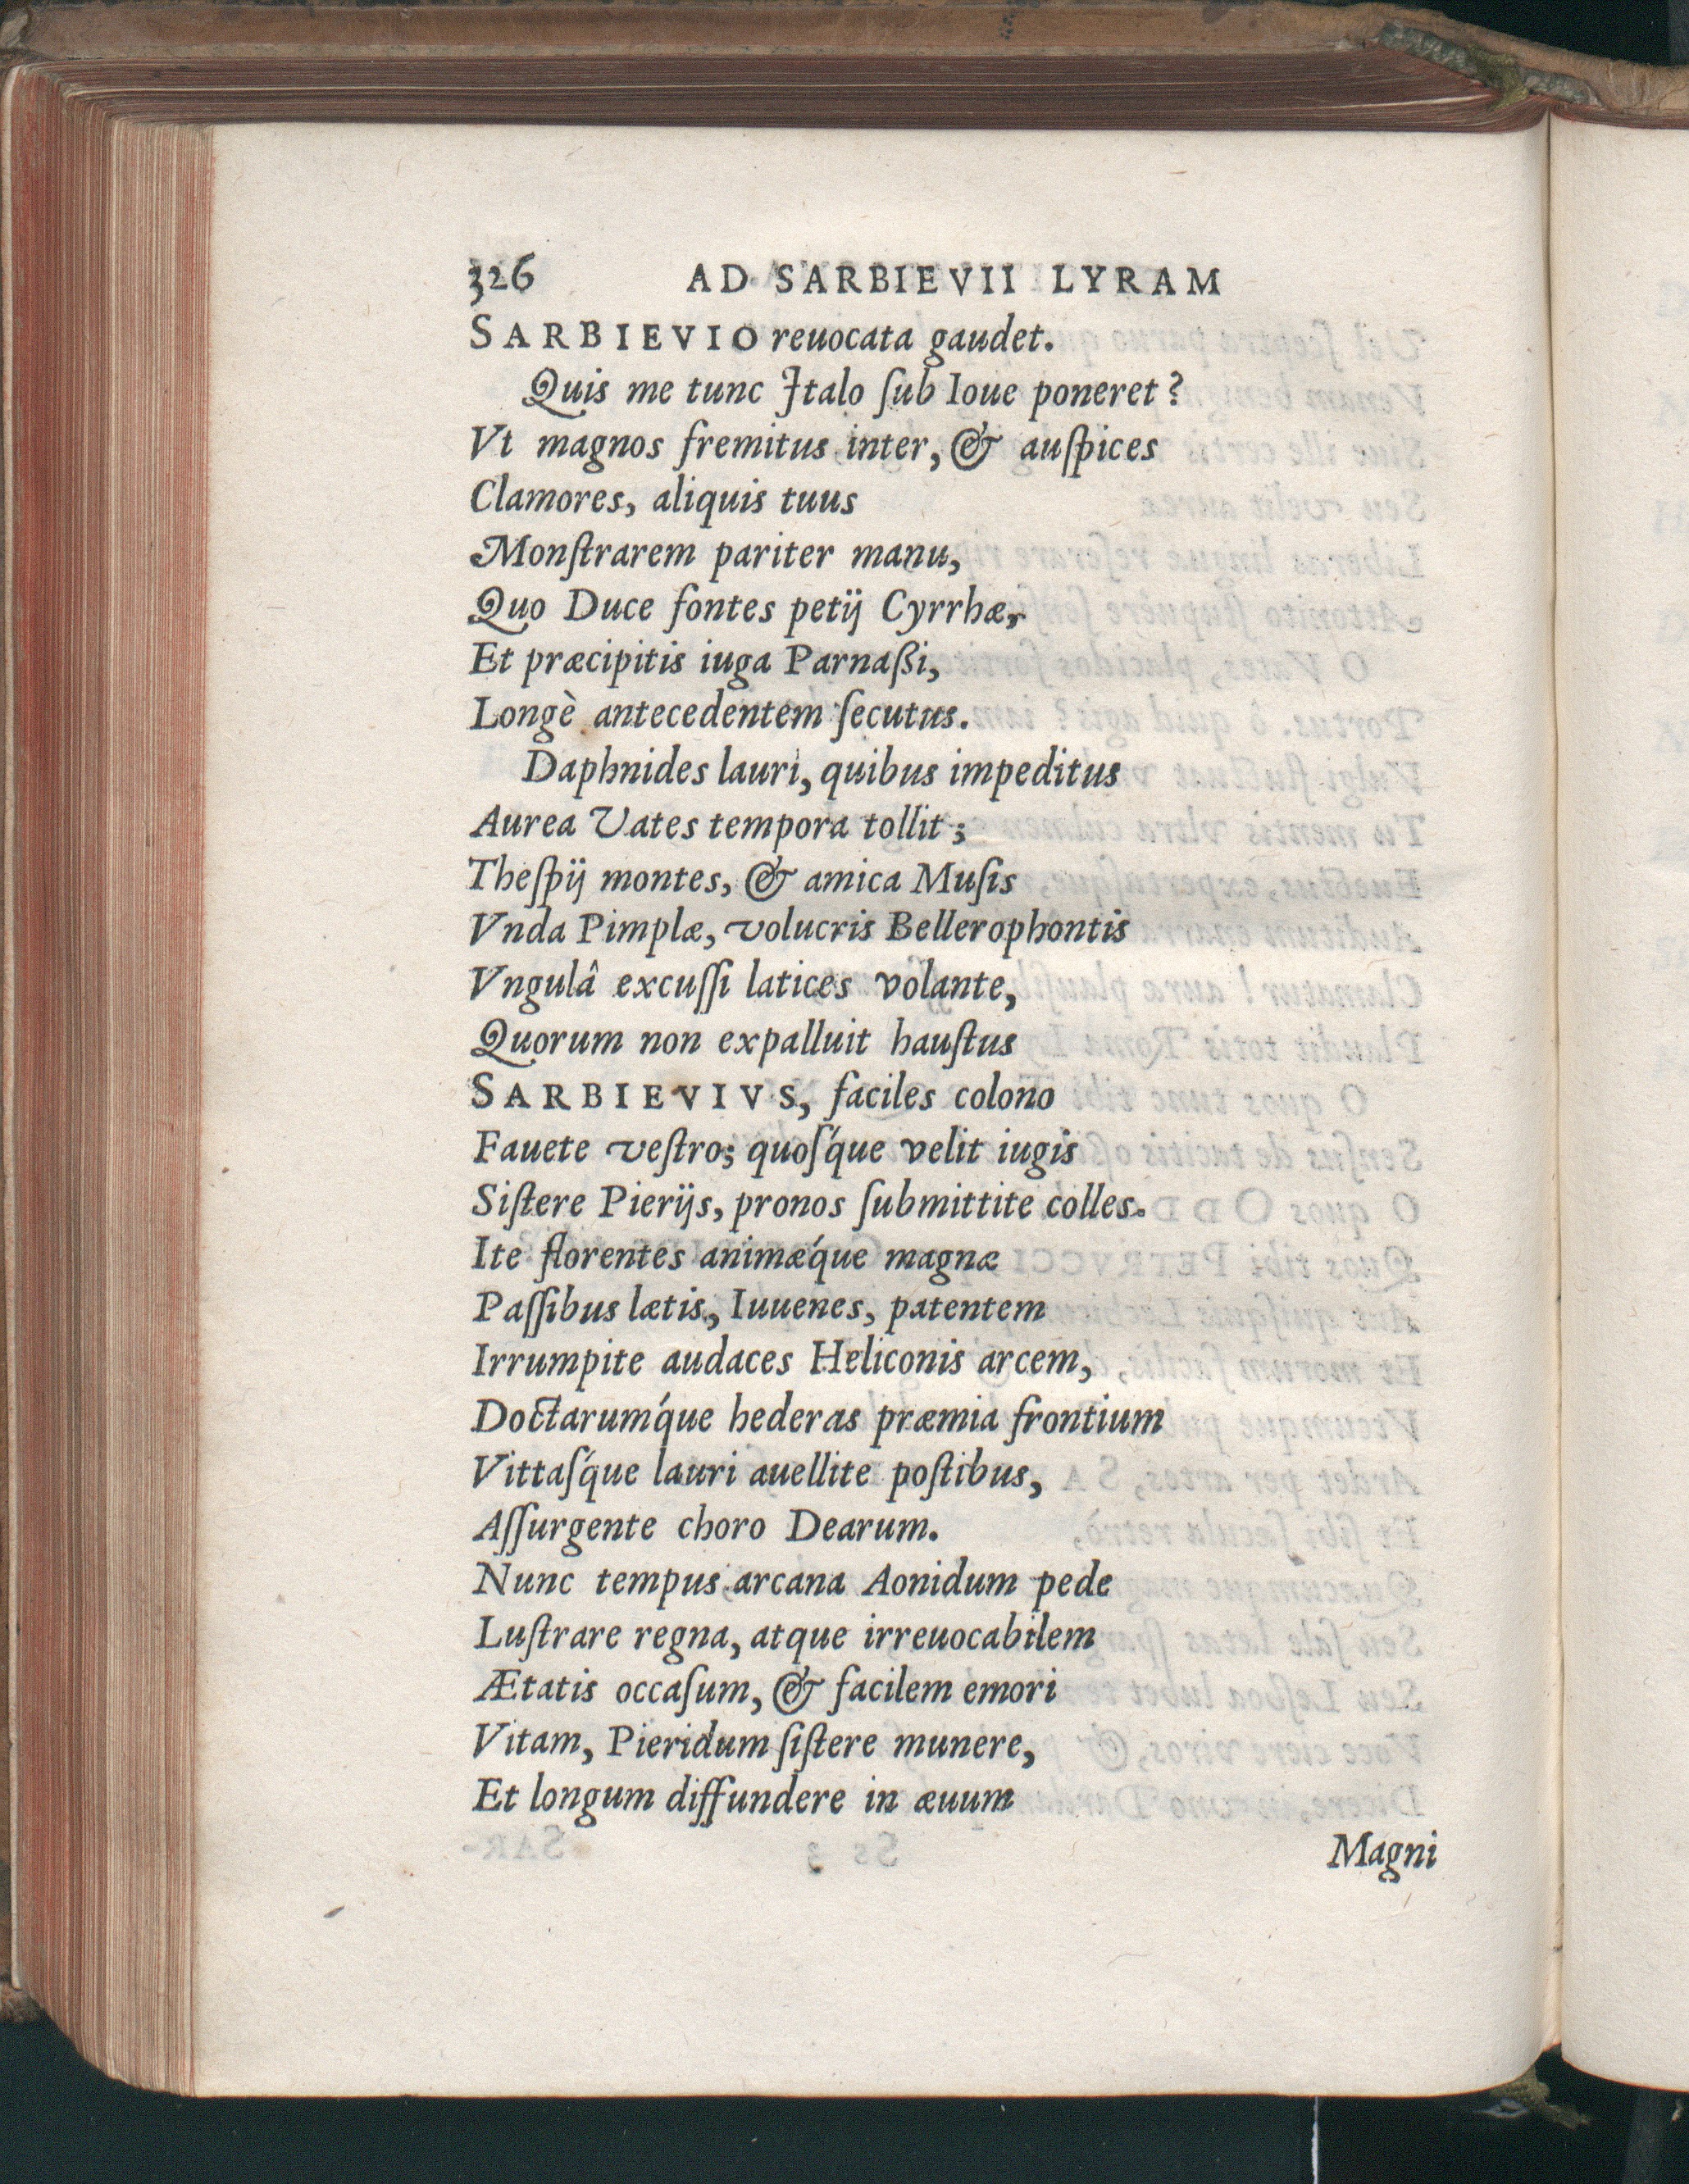 326 AD SARBIEVII LYRAM
SARBIEVIO reuocata gaudet.
Quis me tunc Italo ſub Ioue poneret?
Vt magnos fremitus inter, & auſpices
Clamores, aliquis tuus
Monſtrarem pariter manu,
Quo Duce fontes petij Cyrrhæ,
Et præcipitis iuga Parnaßi,
Longè antecedentem ſecutus.
Daphnides lauri, quibus impeditus
Aurea Vates tempora tollit;
Theſpij montes, & amica Muſis
Vnda Pimplæ, volucris Bellerophontis
Vngulâ excuſſi latices volante,
Quorum non expalluit hauſtus
SARBIEVIVS, faciles colono
Fauete veſtro; quoſq́ue velit iugis
Siſtere Pierijs, pronos ſubmittite colles.
Ite florentes animæq́ue magnæ
Paſſibus lætis, Iuuenes, patentem
Irrumpite audaces Heliconis arcem,
Doctarumq́ue hederas præmia frontium
Vittaſq́ue lauri auellite poſtibus,
Aſſurgente choro Dearum.
Nunc tempus arcana Aonidum pede
Luſtrare regna, atque irreuocabilem
Ætatis occaſum, & facilem emori
Vitam, Pieridum ſiſtere munere,
Et longum diffundere in æuum
Magni